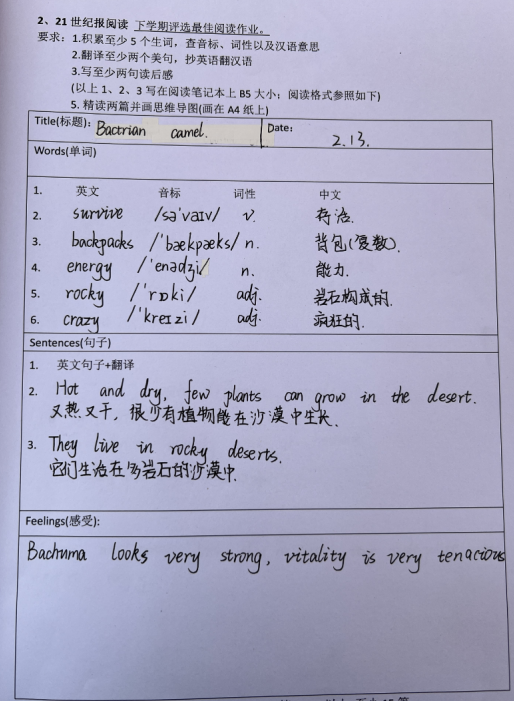 2、21 世纪报阅读 下学期评选最佳阅读作业。
要求：1.积累至少 5 个生词，查音标、词性以及汉语意思
2.翻译至少两个美句，抄英语翻汉语
3.写至少两句读后感
(以上 1、2、3 写在阅读笔记本上 B5 大小；阅读格式参照如下)
5. 精读两篇并画思维导图(画在 A4 纸上)
Title(标题): Bactrian camel. Date: 2.13.
Words(单词)
1. 英文 音标 词性 中文
2. survive /sə'vaɪv/ v. 存活.
3. backpacks /'bækpæks/ n. 背包(复数).
4. energy /'enədʒi/ n. 能力.
5. rocky /'rɒki/ adj. 岩石构成的.
6. crazy /'kreɪzi/ adj. 疯狂的.
Sentences(句子)
1. 英文句子+翻译
2. Hot and dry, few plants can grow in the desert.
又热又干，很少有植物能在沙漠中生长.
3. They live in rocky deserts.
它们生活在多岩石的沙漠中.
Feelings(感受):
Bachuma looks very strong, vitality is very tenacious